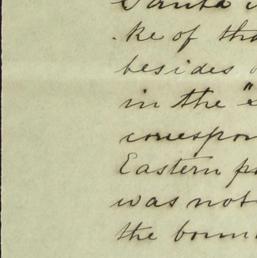 Santa
ke of tha
besides
in the "
correspon
Eastern p
was not
the boun